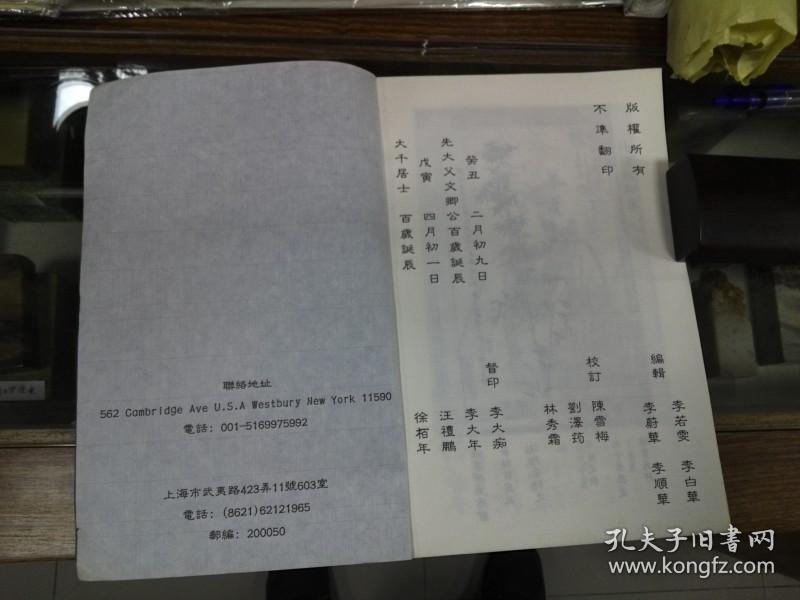 版權所有
不準翻印
癸丑 二月初九日
先大父文卿公百歲誕辰
戊寅 四月初一日
大千居士 百歲誕辰
編輯 李若雯 李白華
李蔚華 李順華
校訂 陳雪梅
劉澤筠
林秀霜
督印 李大痴
李大年
汪禮鵬
徐栢年
聯絡地址
562 Cambridge Ave U.S.A Westbury New York 11590
電話: 001-5169975992
上海市武夷路423弄11號603室
電話: (8621)62121965
郵編: 200050
孔夫子旧书网
www.kongfz.com